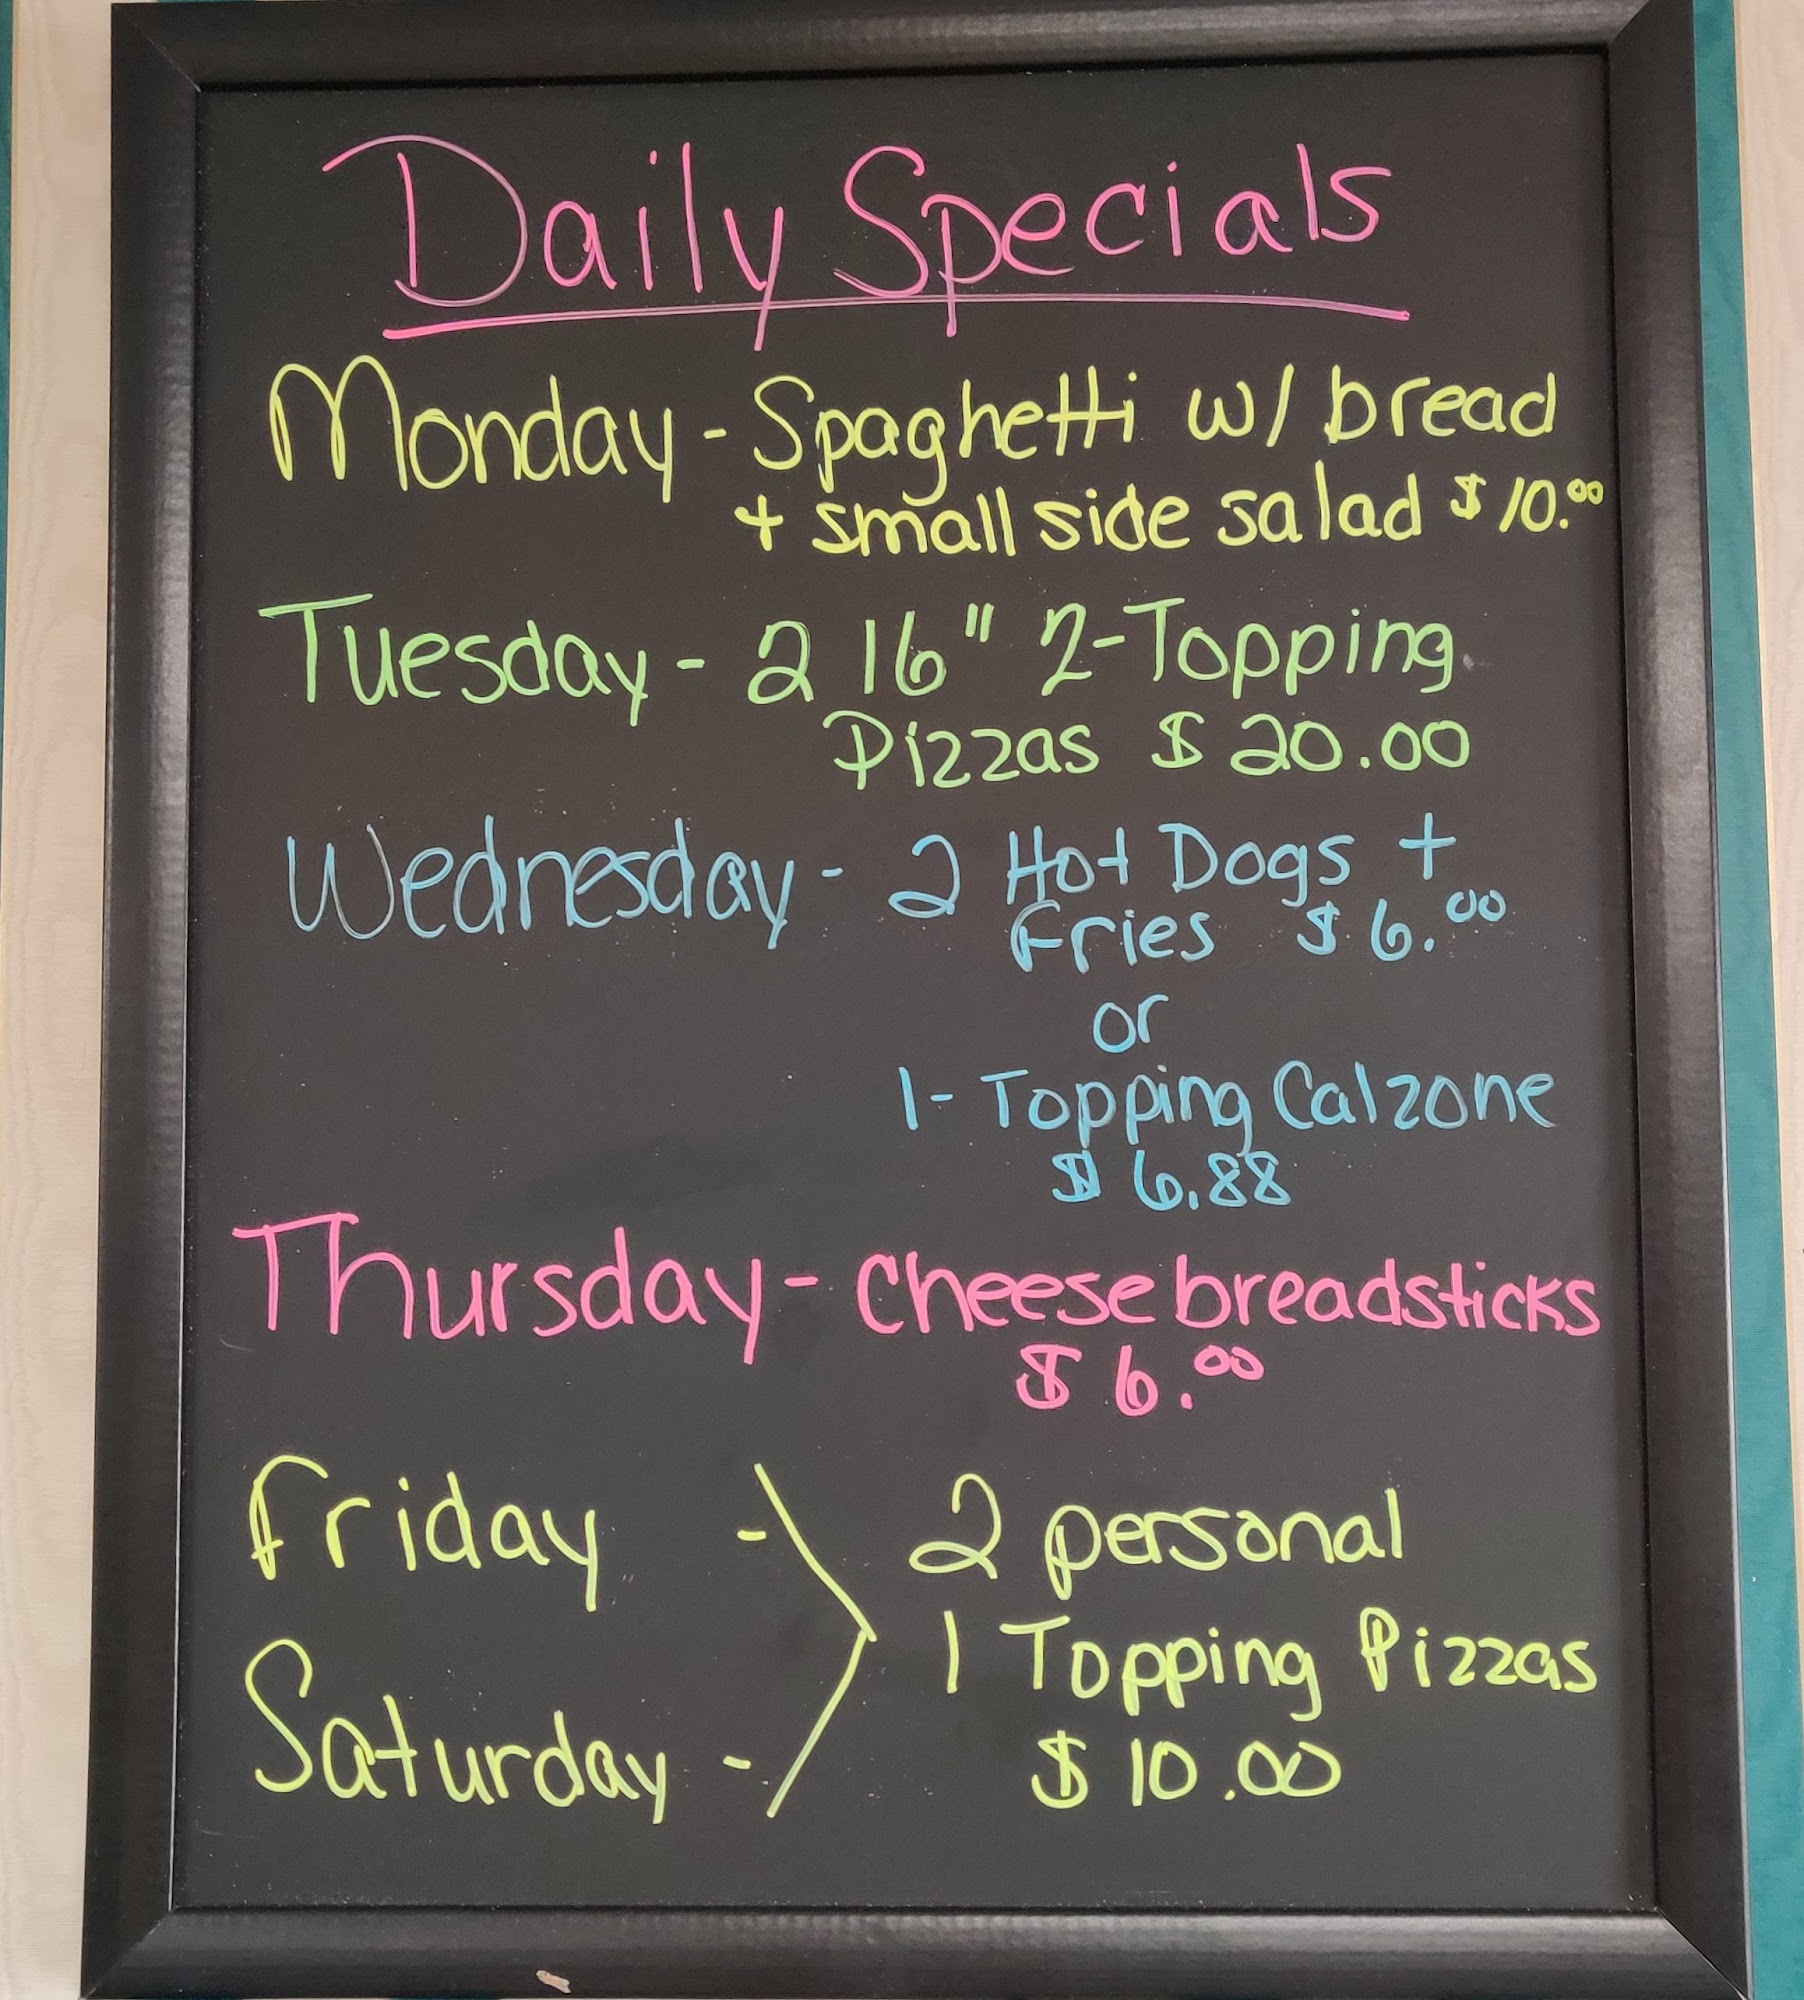 Daily Specials
Monday - Spaghetti w/ bread
+ small side salad $10.00
Tuesday - 2 16" 2-Topping
Pizzas $20.00
Wednesday - 2 Hot Dogs +
Fries $6.00
or
1- Topping Calzone
$6.88
Thursday - Cheese breadsticks
$6.00
Friday - 2 personal
1 Topping Pizzas
Saturday - $10.00